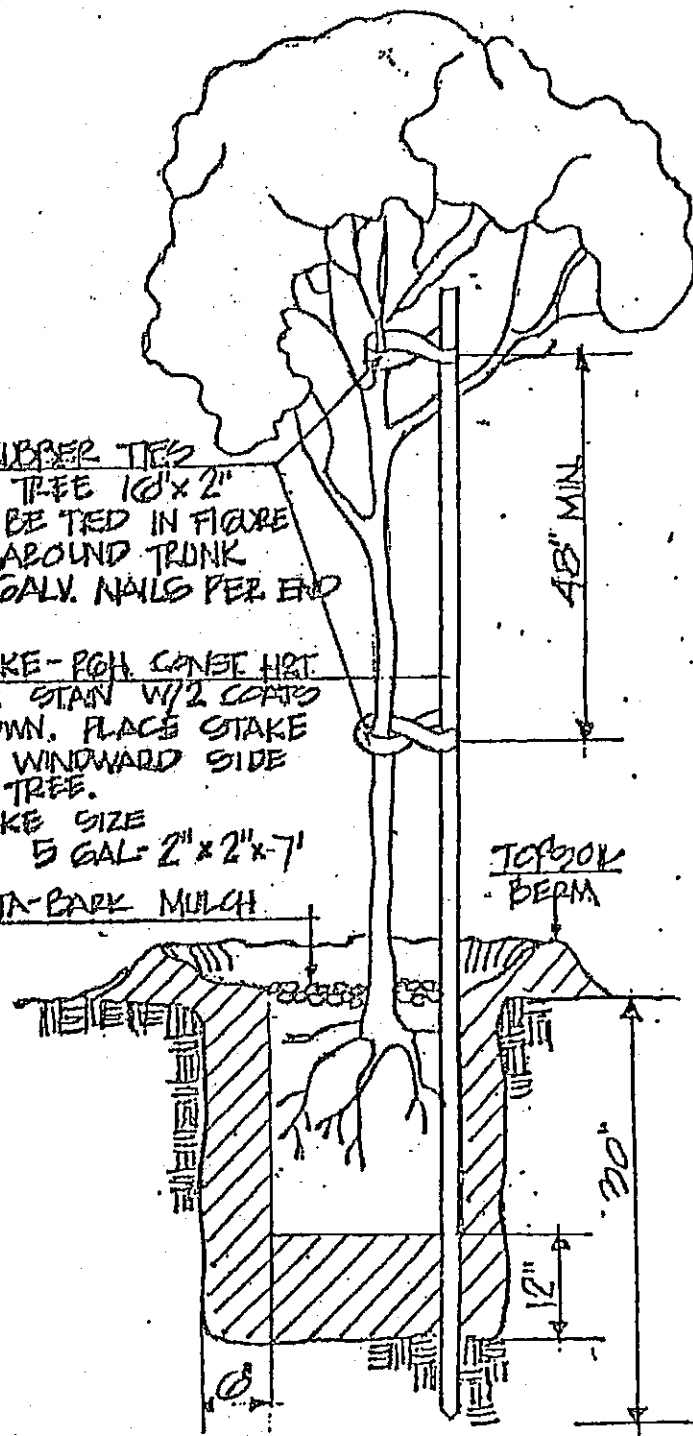 RUBBER TIES
TREE 16" x 2"
BE TIED IN FIGURE
AROUND TRUNK
GALV. NAILS PER END
48" MIN.
KE-RGH. CONST. HRT.
STAIN W/2 COATS
WN. PLACE STAKE
WINDWARD SIDE
TREE.
KE SIZE
5 GAL- 2" x 2" x 7'
TA-BARK MULCH
TOPSOIL
BERM
30"
12"
6"